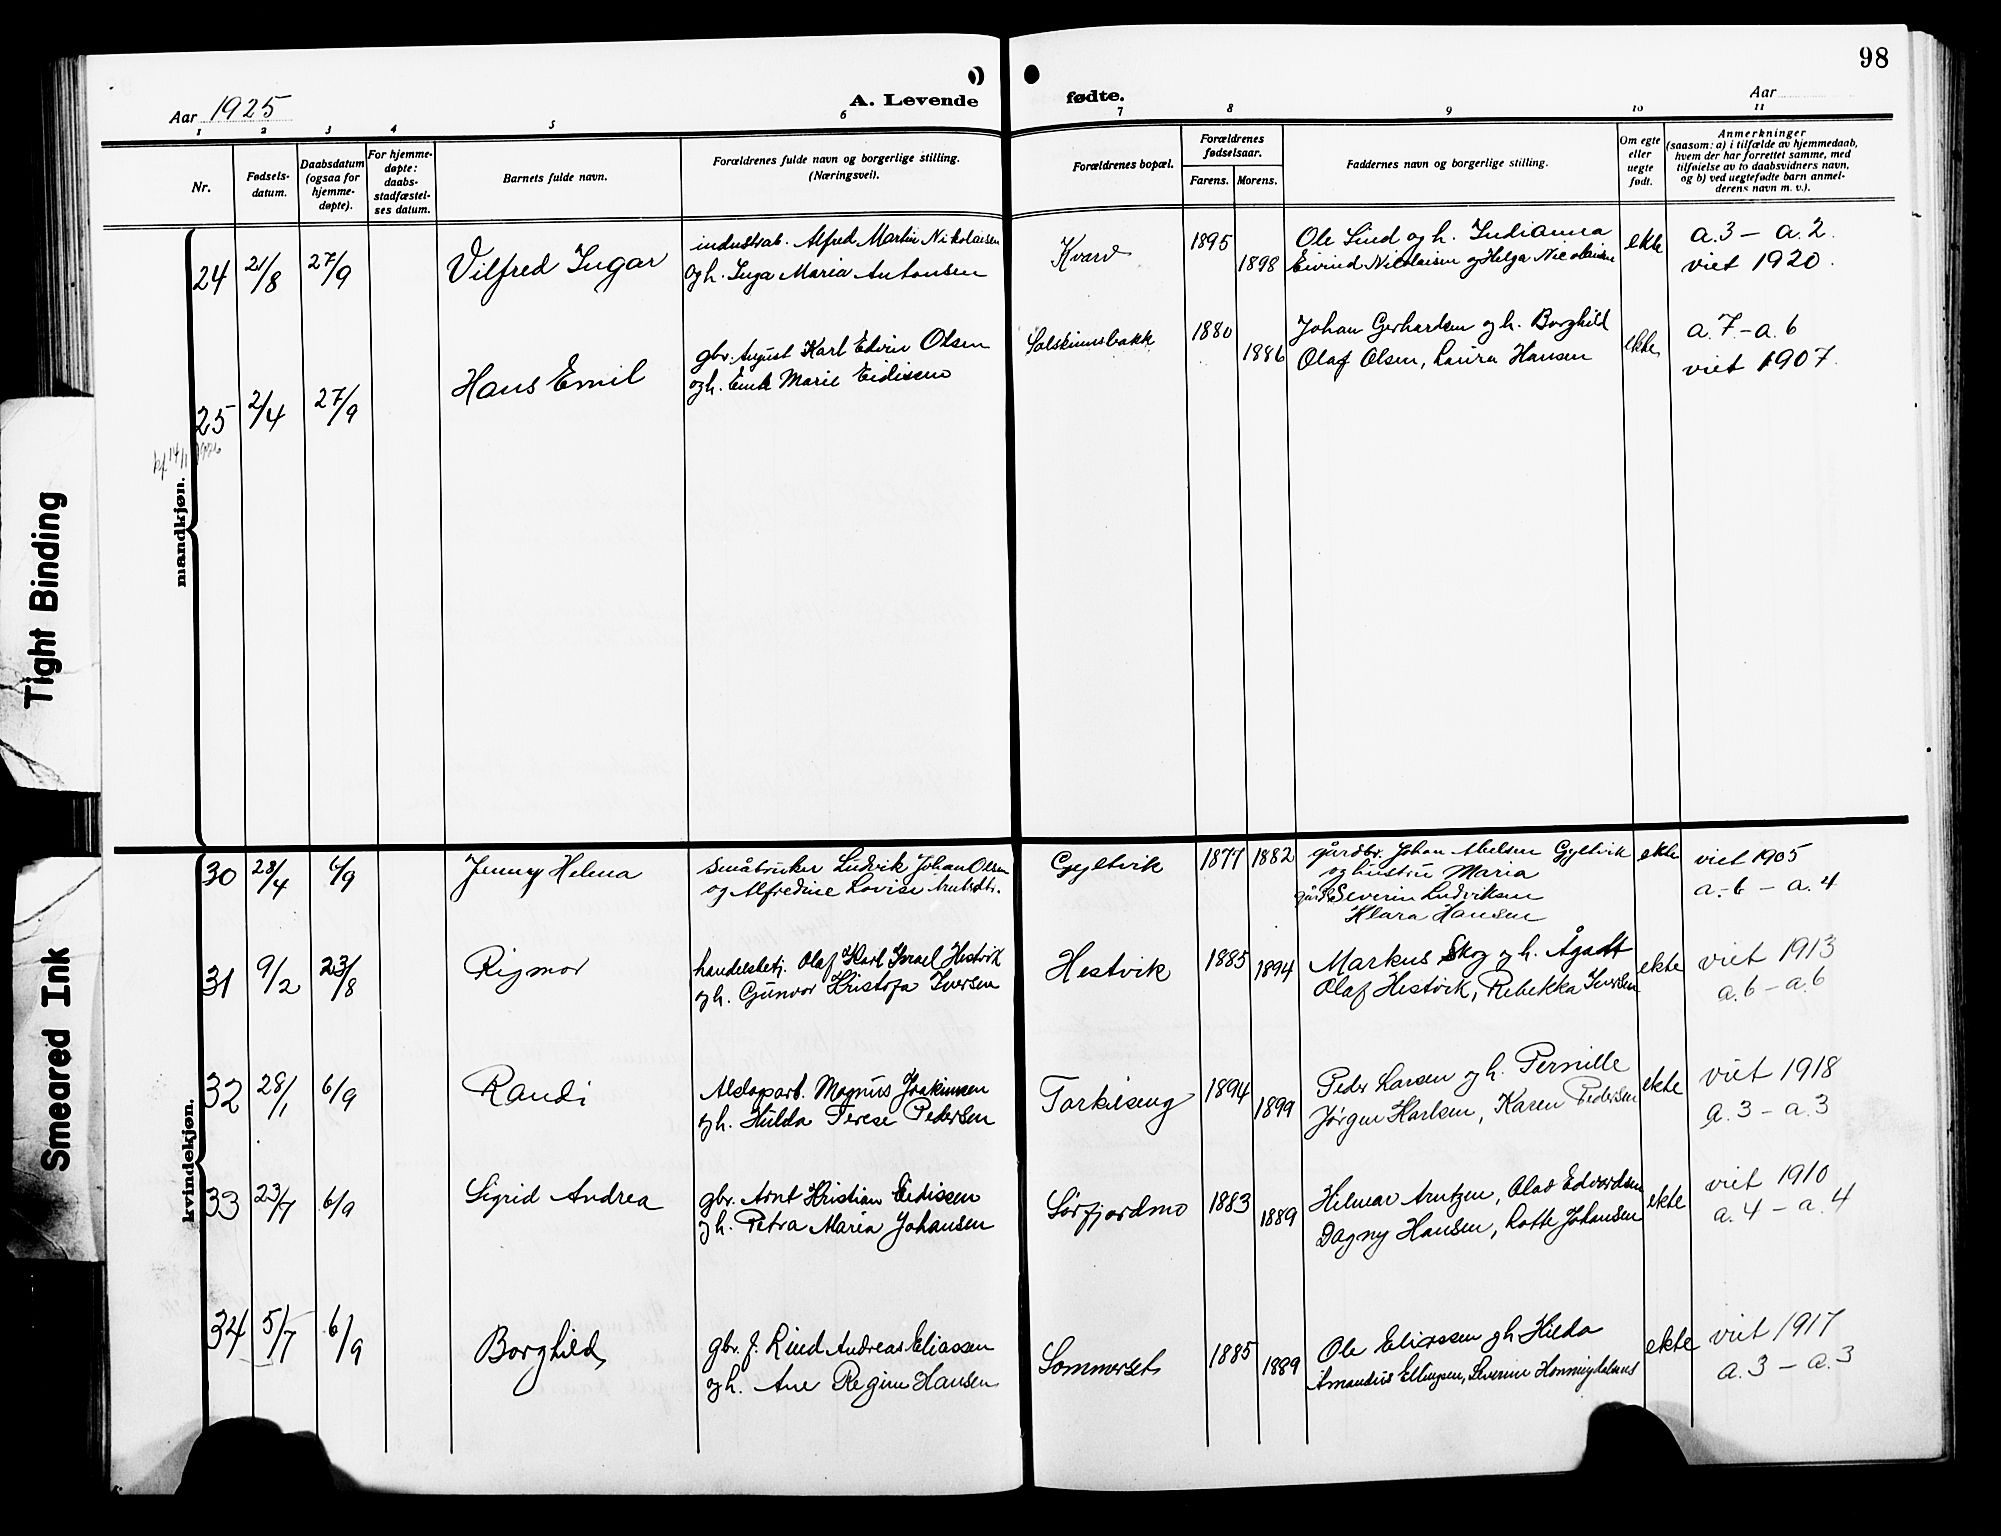 98
Aar 1925
A. Levende
fødte.
Aar
1 2 3 4 5 6 7 8 9 10 11
Nr.
Fødsels-
datum.
Daabsdatum
(ogsaa for
hjemme-
døpte).
For hjemme-
døpte:
daabs-
stadfæstel-
ses datum.
Barnets fulde navn.
Forældrenes fulde navn og borgerlige stilling.
(Næringsvei).
Forældrenes bopæl.
Forældrenes
fødselsaar.
Farens. Morens.
Faddernes navn og borgerlige stilling.
Om egte
eller
uegte
født.
Anmerkninger
(saasom: a) i tilfælde av hjemmedaab,
hvem der har forrettet samme, med
tilføielse av to daabsvidners navn,
og b) ved uegtefødte barn anmel-
derens navn m. v.).
mandkjøn.
24 21/8 27/9 Vilfred Ingar
industrab. Alfred Martin Nikolaisen
og h. Inga Maria Antonsen
Kvarv 1895 1898
Ole Lind og h. Indianna
Eivind Nicolaisen og Helga Nicolaisen
ekte
a.3 – a.2.
viet 1920.
25 2/4 27/9 Hans Emil
gbr. August Karl Edvin Olsen
og h. Emk Marie Eidissen
Solskinnsbakk 1880 1886
Johan Gerhardsen og h. Borghild
Olaf Olsen, Laura Hansen
ekte
a.7 – a.6
viet 1907.
kvindekjøn.
30 28/4 6/9 Jenny Helena
småbruker Ludvik Johan Olsen
og Alfredine Lovise Arntsdtr.
Gyltvik 1877 1882
gårdbr. Johan Abelsen Gyltvik
og hustru Maria
Severin Ludviksen
Klara Hansen
ekte
viet 1905
a.-6 – a.4
31 9/2 23/8 Rigmor
handelsbetj. Olaf Karl Israel Hestvik
og h. Gunvor Kristofa Iversen
Hestvik 1885 1894
Markus Skog og h. Ågadt
Olaf Hestvik, Rebekka Iversen
ekte
viet 1913
a.6 – a.6
32 28/1 6/9 Randi
Magnus Joakimsen
og h. Hilda Terese Pedersen
Torkilseng 1894 1899
Peder Larsen og h. Pernille
Jørgen Karlsen, Karen Pedersen
ekte
viet 1918
a.3 – a.3
33 23/7 6/9 Sigrid Andrea
gbr. Arnt Kristian Eidissen
og h. Petra Maria Johansen
Sørfjordmo 1883 1889
Hilmar Arntzen, Olav Edvardsen
Dagny Hansen, Lotte Johansen
ekte
viet 1910
a.4 – a.4
34 5/7 6/9 Borghild
gbr. f. Lind Andreas Eliassen
og h. Ane Regine Hansen
Sommerset 1885 1889
Ole Eliassen og h Hilda
Amandus Ellingsen, Severine Honningdalsnes
ekte
viet 1917
a.3 – a.3
Tight Binding
Smeared Ink